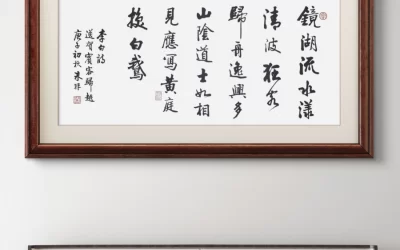 鏡湖流水漾
清波狂客
歸舟逸興多
山陰道士如相
見應寫黃庭
換白鵝
李白詩
送賀賓客歸越
庚子初秋